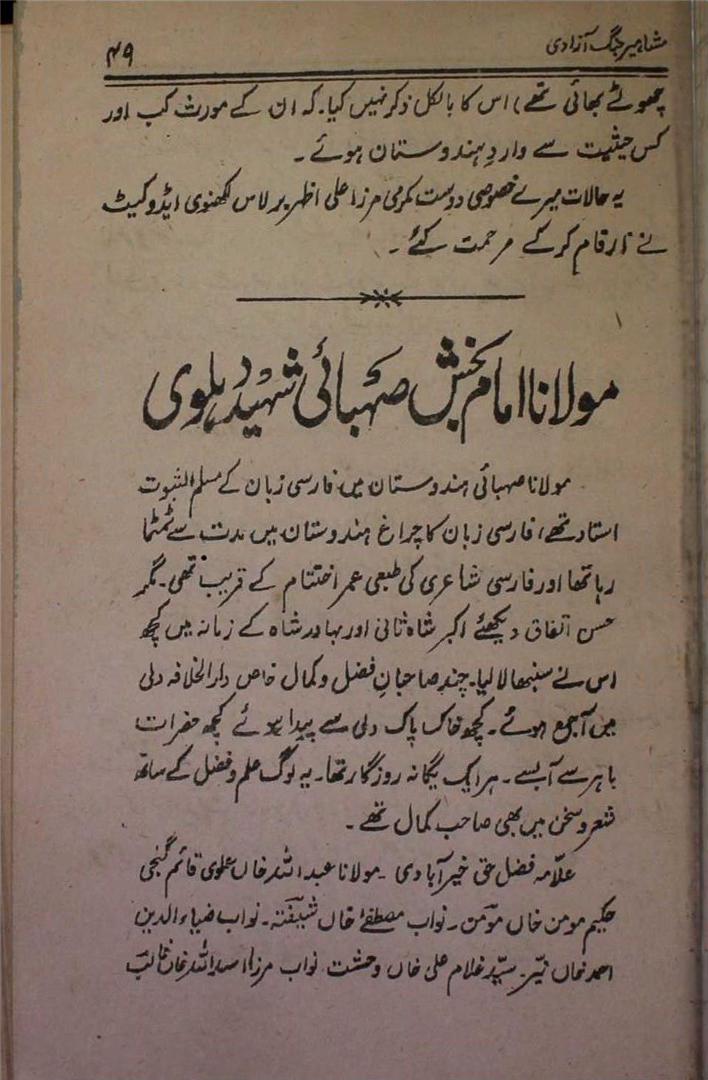 مشاہیر جنگ آزادی
۴۹
چھوٹے بھائی تھے) اس کا بالکل ذکر نہیں کیا۔ کہ ان کے مورث کب اور
کس حیثیت سے واردِ ہندوستان ہوئے۔
یہ حالات میرے خصوصی دوست مکرمی مرزا علی اظہر برلاس لکھنوی ایڈوکیٹ
نے ارقام کر کے مرحمت کئے۔
مولانا امام بخش صہبائی شہید دہلوی
مولانا صہبائی ہندوستان میں فارسی زبان کے مسلم الثبوت
استاد تھے، فارسی زبان کا چراغ ہندوستان میں مدت سے ٹمٹما
رہا تھا اور فارسی شاعری کی طبعی عمر اختتام کے قریب تھی۔ مگر
حسن اتفاق دیکھئے اکبر شاہ ثانی اور بہادر شاہ کے زمانہ میں کچھ
اس نے سنبھالا لیا۔ چند صاحبانِ فضل و کمال خاص دارالخلافہ دلی
میں آجمع ہوئے۔ کچھ خاک پاک دلی سے پیدا ہوئے کچھ حضرات
باہر سے آبسے۔ ہر ایک یگانہ روزگار تھا۔ یہ لوگ علم و فضل کے ساتھ
شعر و سخن میں بھی صاحب کمال تھے۔
علّامہ فضل حق خیرآبادی۔ مولانا عبداللہ خاں علوی قائم گنجی
حکیم مومن خاں مومن۔ نواب مصطفےٰ خاں شیفتہ۔ نواب ضیاء الدین
احمد خاں نیّر۔ سیّد غلام علی خاں وحشت نواب مرزا اسد اللہ خاں غالب